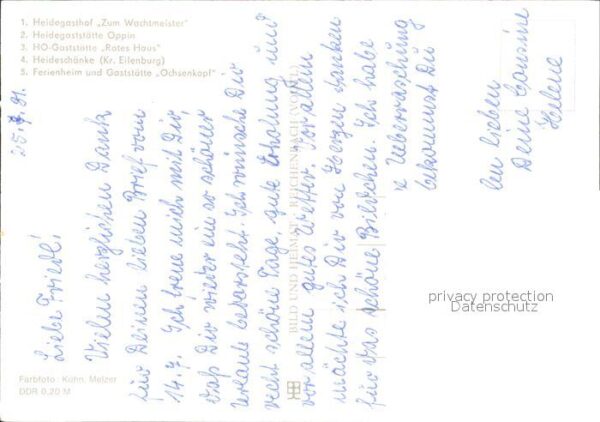 1. Heidegasthof „Zum Wachtmeister“
2. Heidegaststätte Oppin
3. HO-Gaststätte „Rotes Haus“
4. Heideschänke (Kr. Eilenburg)
5. Ferienheim und Gaststätte „Ochsenkopf“
25.7.81.
Liebe Friedl!
Vielen herzlichen Dank
für Deinen lieben Brief vom
14.7. Ich freue mich mit Dir,
daß Dir wieder ein so schöner
Urlaub bevorsteht. Ich wünsche Dir
recht schöne Tage, gute Erholung und
vor allem gutes Wetter. Vor allem
möchte ich Dir von Herzen danken
für das schöne Bildchen. Ich habe
Ueberraschung
bekommst Du
lieben
Deine Cousine
Helene
BILD UND HEIMAT REICHENBACH (VOGTL)
Farbfoto: Kühn, Melzer
DDR 0,20 M
privacy protection
Datenschutz